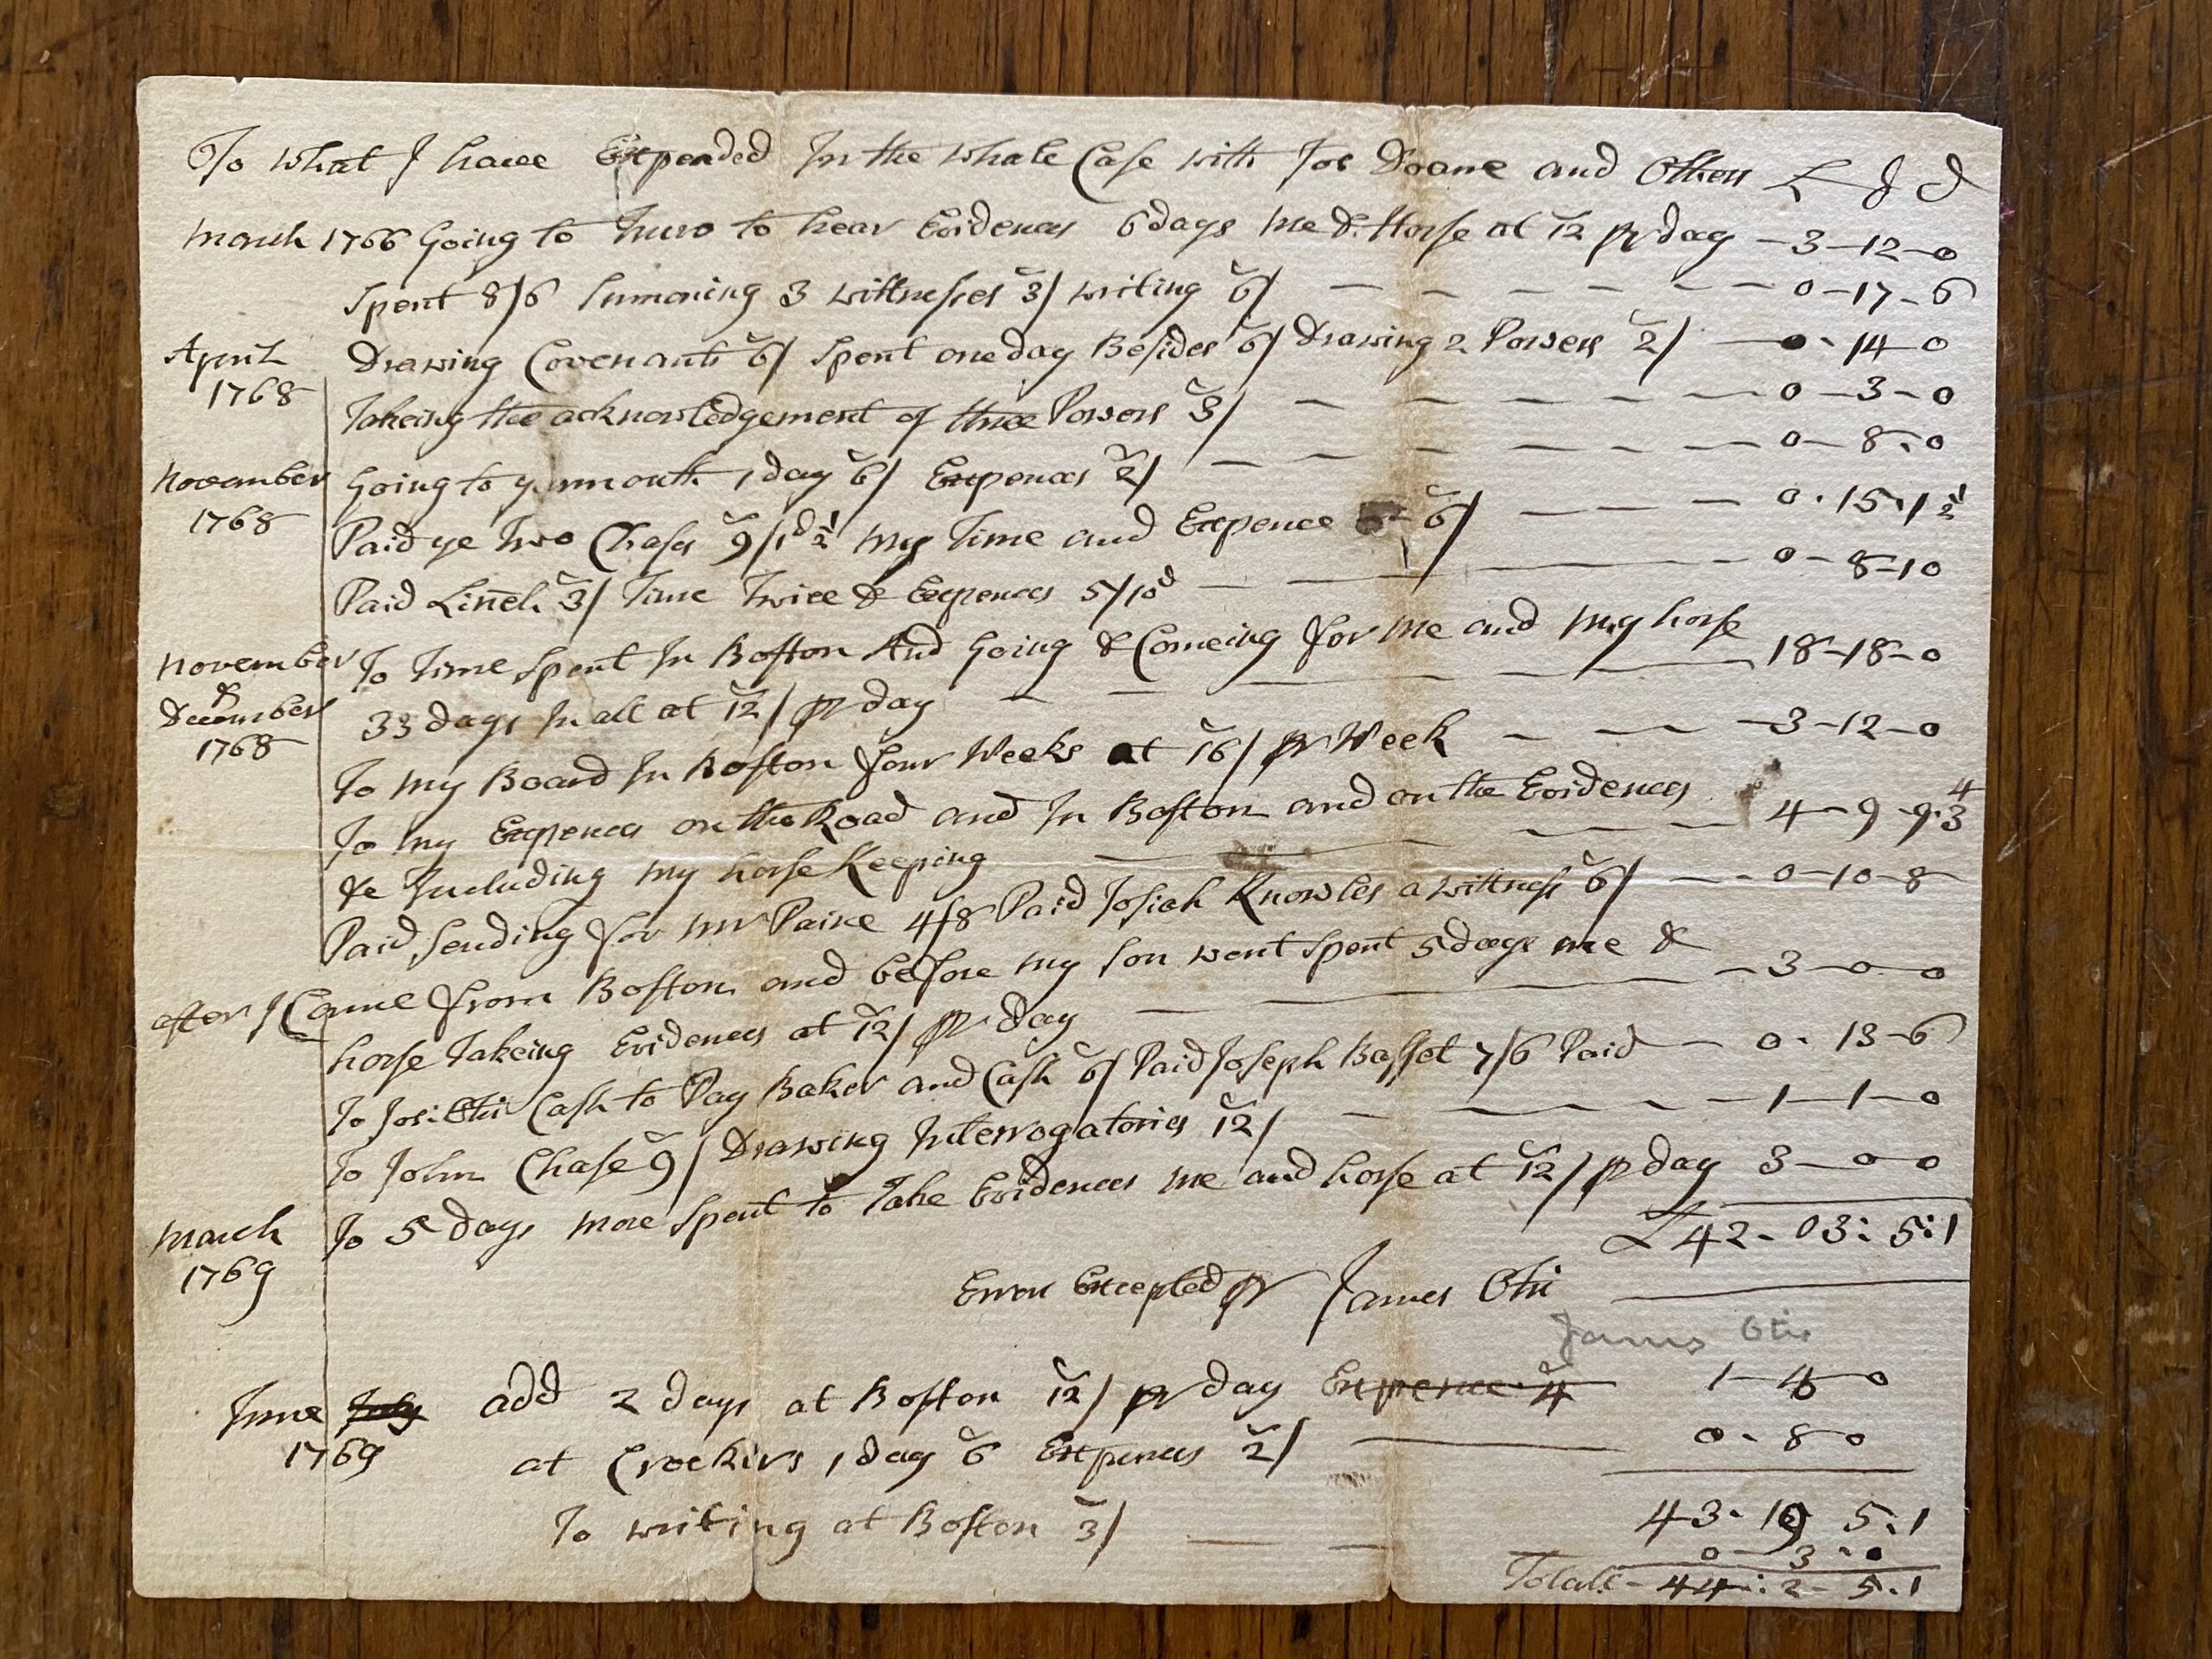 To what I have Expended In the whale Case with Jos Doane and Others £ S D
March 1766 Going to Truro to hear Evidences 6 days me & Horse at 12 pr day - 3 - 12 - 0
Spent 8/6 Sumoning 3 wittnesses 3/ writing 6/ - 0 - 17 - 6
April 1768 Drawing Covenants 6/ Spent one day Besides 6/ Drawing 2 Powers 2/ - 0 - 14 - 0
Takeing the acknowledgement of three Powers 3/ - 0 - 3 - 0
November 1768 Going to yarmouth 1 day 6/ Expences 2/ - 0 - 8 - 0
Paid ye Two Chases 9/1d½ my Time and Expence 6/ - 0 - 15 - 1½
Paid Linel 3/ Time Twice & Expences 5/10d - 0 - 8 - 10
November & December 1768 To Time Spent In Boston And Going & Comeing for me and my horse
33 days In all at 12/ pr day - 18 - 18 - 0
To my Board In Boston four Weeks at 16/ pr Week - 3 - 12 - 0
To my Expences on the Road and In Boston and on the Evidences
&c Including my horse Keeping - 4 - 9 - 9 · 3 4
Paid Sending for Mr Paine 4/8 Paid Josiah Knowles a wittness 6/ - 0 - 10 - 8
after I Came from Boston and before my son went Spent 5 days me &
horse Takeing Evidences at 12/ pr day - 3 - 0 - 0
To Jos: Otis Cash to Pay Baker and Cash 6/ Paid Joseph Basset 7/6 Paid - 0 - 13 - 6
To John Chase 9/ Drawing Interrogatories 12/ - 1 - 1 - 0
March 1769 To 5 days more Spent to Take Evidences me and horse at 12/ pr day 3 - 0 - 0
£42 - 03 : 5 : 1
Errors Excepted pr James Otis
James Otis
June July 1769 add 2 days at Boston 12/ pr day Expence 4 1 - 4 - 0
at Crockers 1 day 6 Expences 2/ 0 - 8 - 0
43 - 19 5 . 1
To writing at Boston 3/ 0 - 3 - 0
Totall - 44 : 2 - 5 . 1